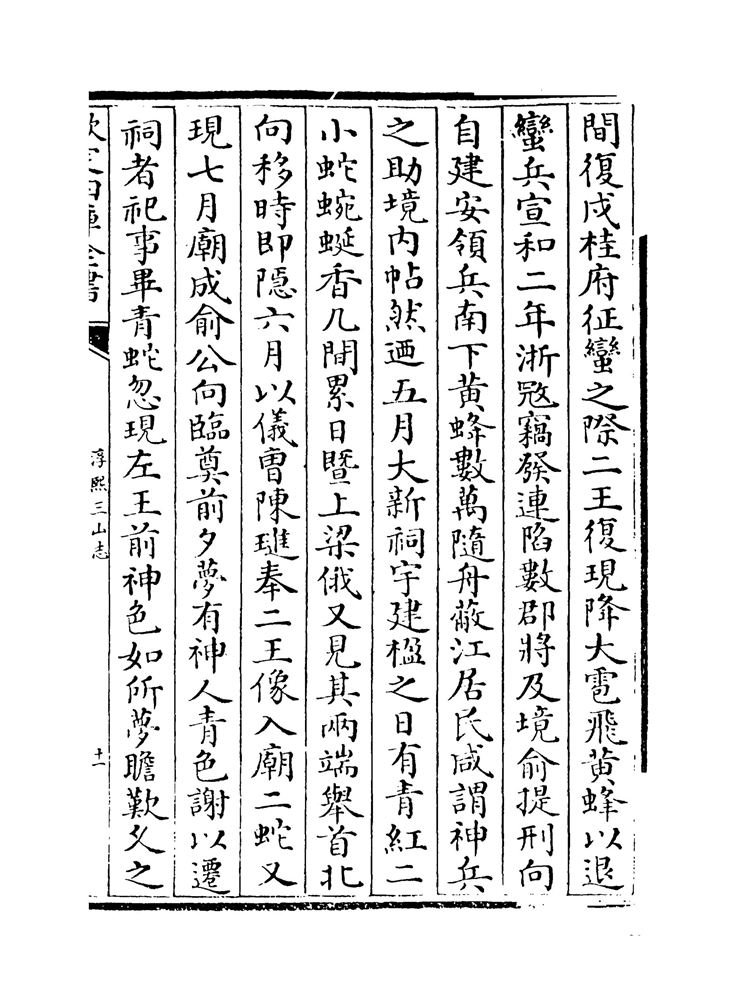 間復戍桂府征蠻之際二王復現降大雹飛黄蜂以退
蠻兵宣和二年浙㓂竊發連陷數郡將及境俞提刑向
自建安領兵南下黄蜂數萬隨舟蔽江居民咸謂神兵
之助境内帖然廼五月大新祠宇建楹之日有青紅二
小蛇蜿蜒香几間累日暨上梁俄又見其兩端舉首北
向移時即隱六月以儀曺陳璡奉二王像入廟二蛇又
現七月廟成俞公向臨奠前夕夢有神人青色謝以遷
祠者祀事畢青蛇忽現左王前神色如所夢瞻歎久之
欽定四庫全書
淳熙三山志
十一